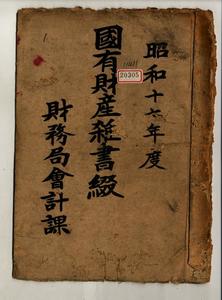 昭和十七年度
20305
國有財産雜書綴
財務局會計課